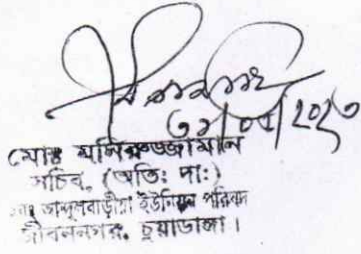 ৩১/০৫/২০২৩
মোঃ মনিরুজ্জামান
সচিব, (অতি: দা:)
আন্দুলবাড়ীয়া ইউনিয়ন পরিষদ
জীবননগর, চুয়াডাঙ্গা।